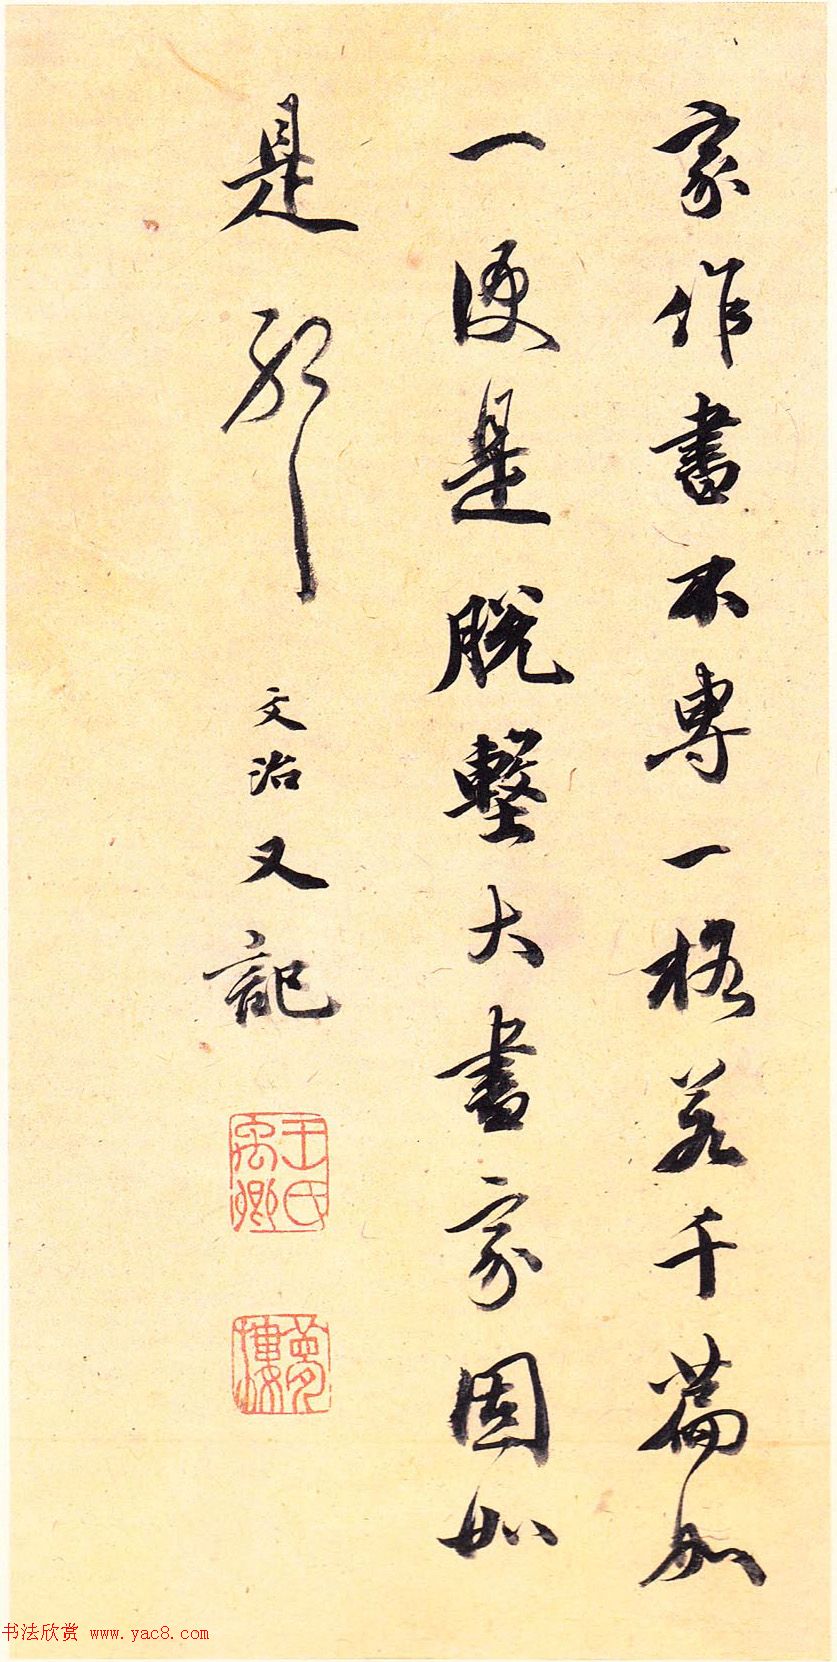 家作書不專一格若千篇如
一便是脫墼大書家固如
是耶 文治又記
王氏禹卿
夢樓
书法欣赏 www.yac8.com